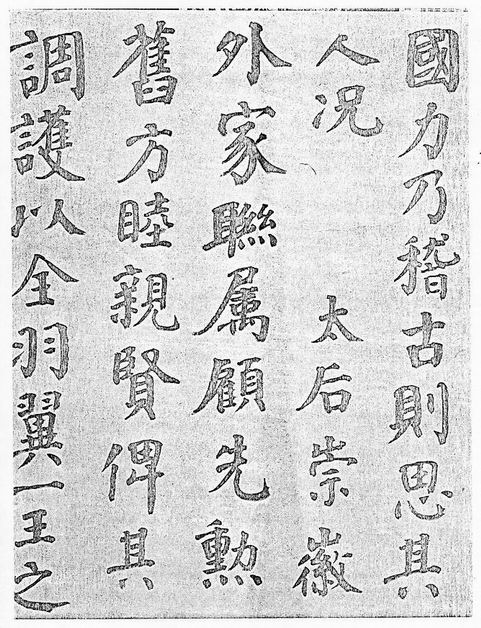 國力乃稽古則思其
人况 太后崇徽
外家聯属顧先勲
舊方睦親賢俾其
調護以全羽翼一王之